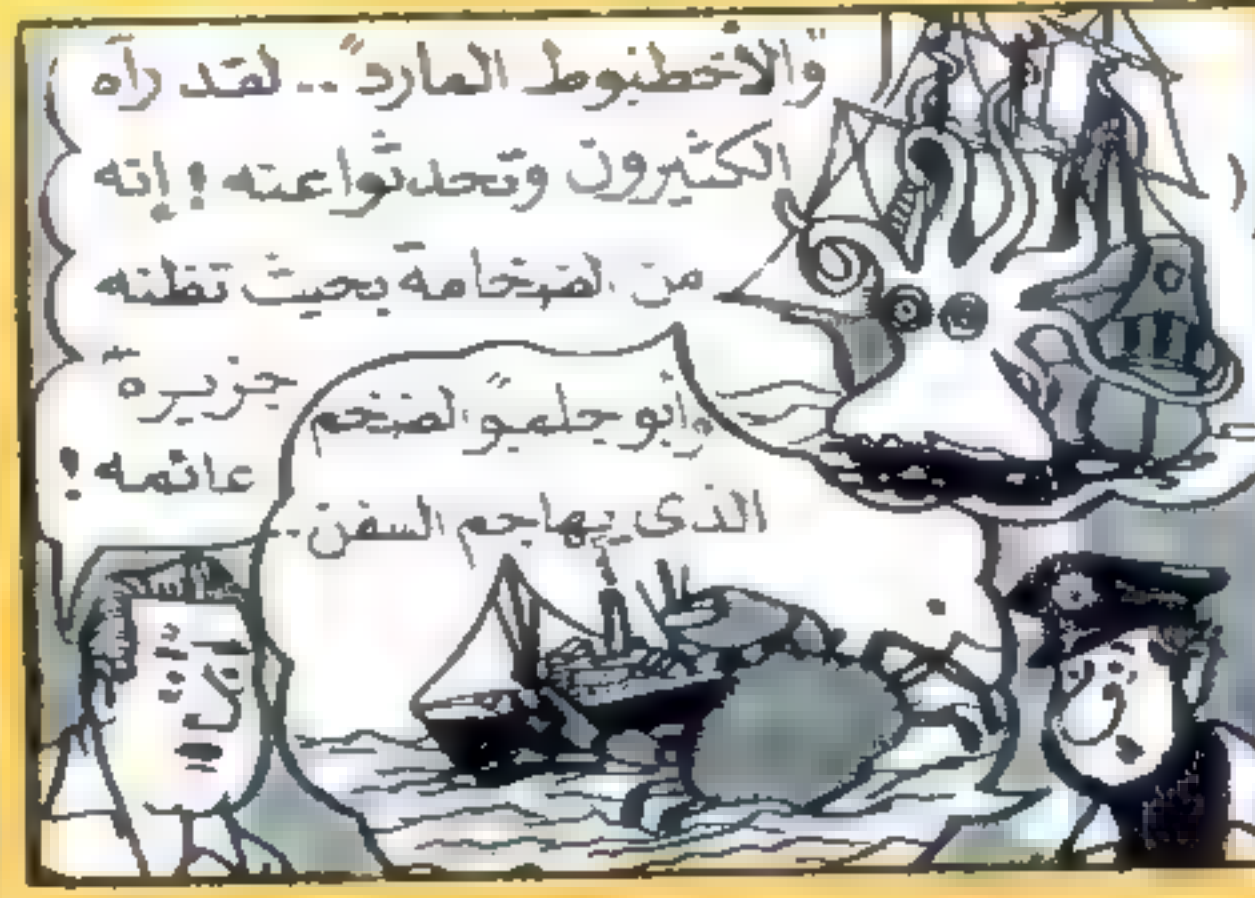 "والأخطبوط المارد".. لقد رآه
الكثيرون وتحدثوا عنه! إنه
من الضخامة بحيث تظنه
"جزيره
عائمه!
"وأبو جلمبو" الضخم
الذى يهاجم السفن..